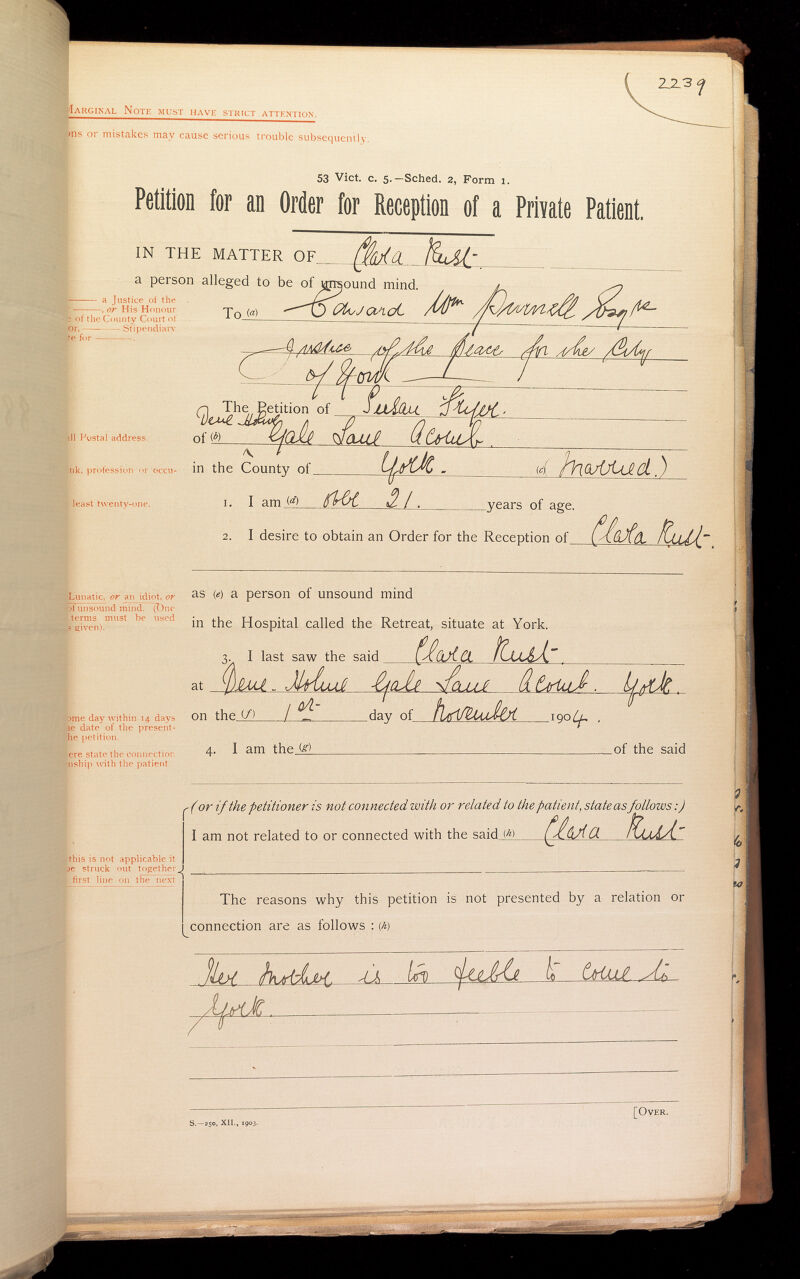 2239
MARGINAL NOTE MUST HAVE STRICT ATTENTION.
ns or mistakes may cause serious trouble subsequently.
53 Vict. c. 5.—Sched. 2, Form 1.
Petition for an Order for Reception of a Private Patient.
IN THE MATTER OF Clara Rust
a person alleged to be of unsound mind.
a Justice of the
, or His Honour
of the County Court of
or, Stipendiary
te for
To (a) Edward Wm Purnell Esqre
Justice of the Peace for the City
of York
The Petition of Susan Styer.
Dene Holme
ll Postal address.
of (b) Gale Lane Acomb.
nk, profession or occu-
in the County of York. (c) Married.)
least twenty-one.
1. I am (d) over 21. years of age.
2. I desire to obtain an Order for the Reception of Clara Rust.
Lunatic, or an idiot, or
of unsound mind. (One
terms must be used
s given).
as (e) a person of unsound mind
in the Hospital called the Retreat, situate at York.
3. I last saw the said Clara Rust.
at Dene Holme Gale Lane Acomb. York.
ome day within 14 days
he date of the present-
he petition.
on the (f) 1st day of November 1904.
ere state the connection
nship with the patient
4. I am the (g) of the said
(or if the petitioner is not connected with or related to the patient, state as follows:)
I am not related to or connected with the said (h) Clara Rust
this is not applicable it
be struck out together
first line on the next
The reasons why this petition is not presented by a relation or
connection are as follows : (h)
Her Mother is too feeble to come to
York.
[OVER.
S.—250, XII., 1903.